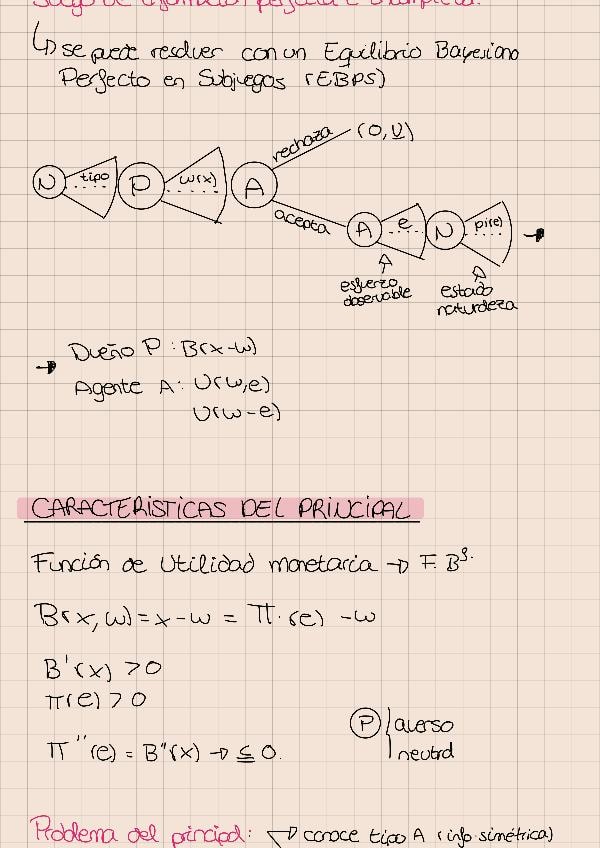 Juego de información perfecta e incompleta.
↳ se puede resolver con un Equilibrio Bayesiano
Perfecto en Subjuegos (EBPS)
rechaza (0,U)
N tipo P w(x) A
acepta A e N p(e) →
esfuerzo observable
estado naturaleza
→ Dueño P : B(x-w)
Agente A: U(w,e)
U(w-e)
CARACTERISTICAS DEL PRINCIPAL
Función de Utilidad monetaria → F. Bº.
B(x,w) = x-w = Π·(e) -w
B'(x) > 0
π(e) > 0
P averso
neutral
Π''(e) = B''(x) → ≤ 0.
Problema del principal: conoce tipo A (info simétrica)